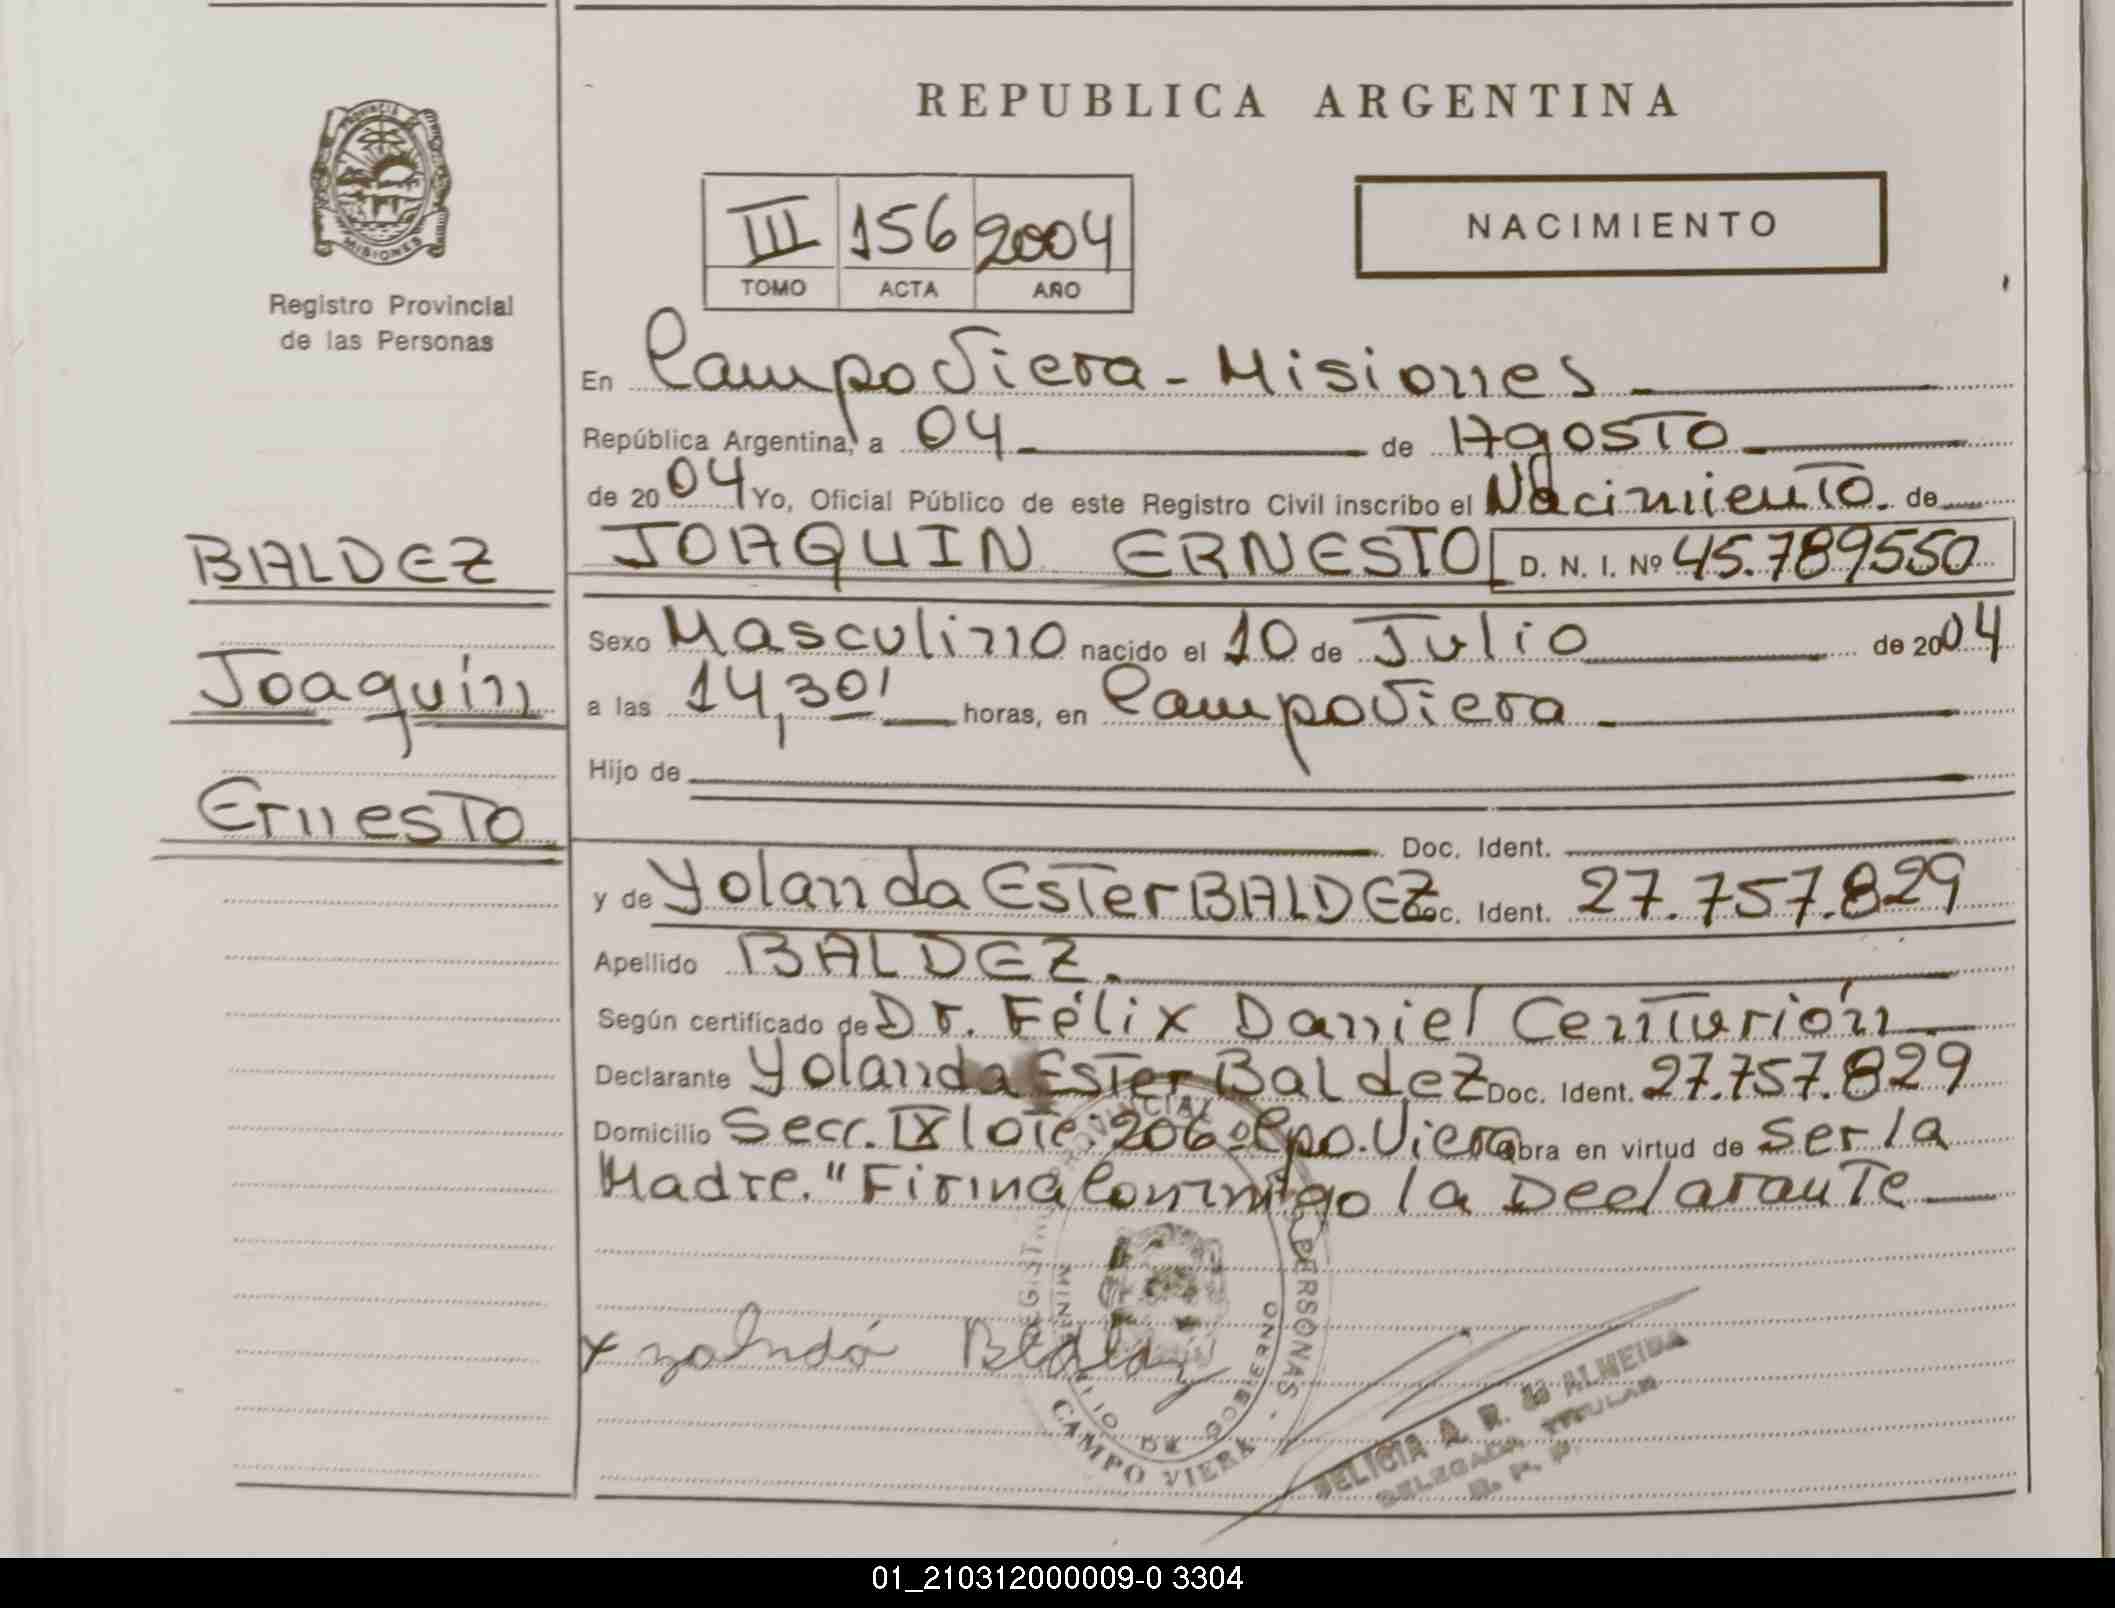 REPUBLICA ARGENTINA
PROVINCIA DE
MISIONES
Registro Provincial
de las Personas
III 156 2004
TOMO ACTA AÑO
NACIMIENTO
En Campo Viera - Misiones
República Argentina, a 04 de Agosto
de 2004 Yo, Oficial Público de este Registro Civil inscribo el Nacimiento. de
BALDEZ
Joaquín
Ernesto
JOAQUIN ERNESTO D. N. I. Nº 45.789550
Sexo Masculino nacido el 10 de Julio de 2004
a las 14,30' horas, en Campo Viera
Hijo de
Doc. Ident.
y de Yolanda Ester BALDEZ Doc. Ident. 27.757.829
Apellido BALDEZ.
Según certificado de Dr. Félix Daniel Centurión
Declarante Yolanda Ester Baldez Doc. Ident. 27.757.829
Domicilio Secc. IX lote 206 Cpo. Viera Obra en virtud de ser la
Madre. "Firma Conmigo la Declarante
CAMPO VIERA
FELICIA A. R. de ALMEIDA
DELEGADA TITULAR
R. P. P.
01_210312000009-0 3304